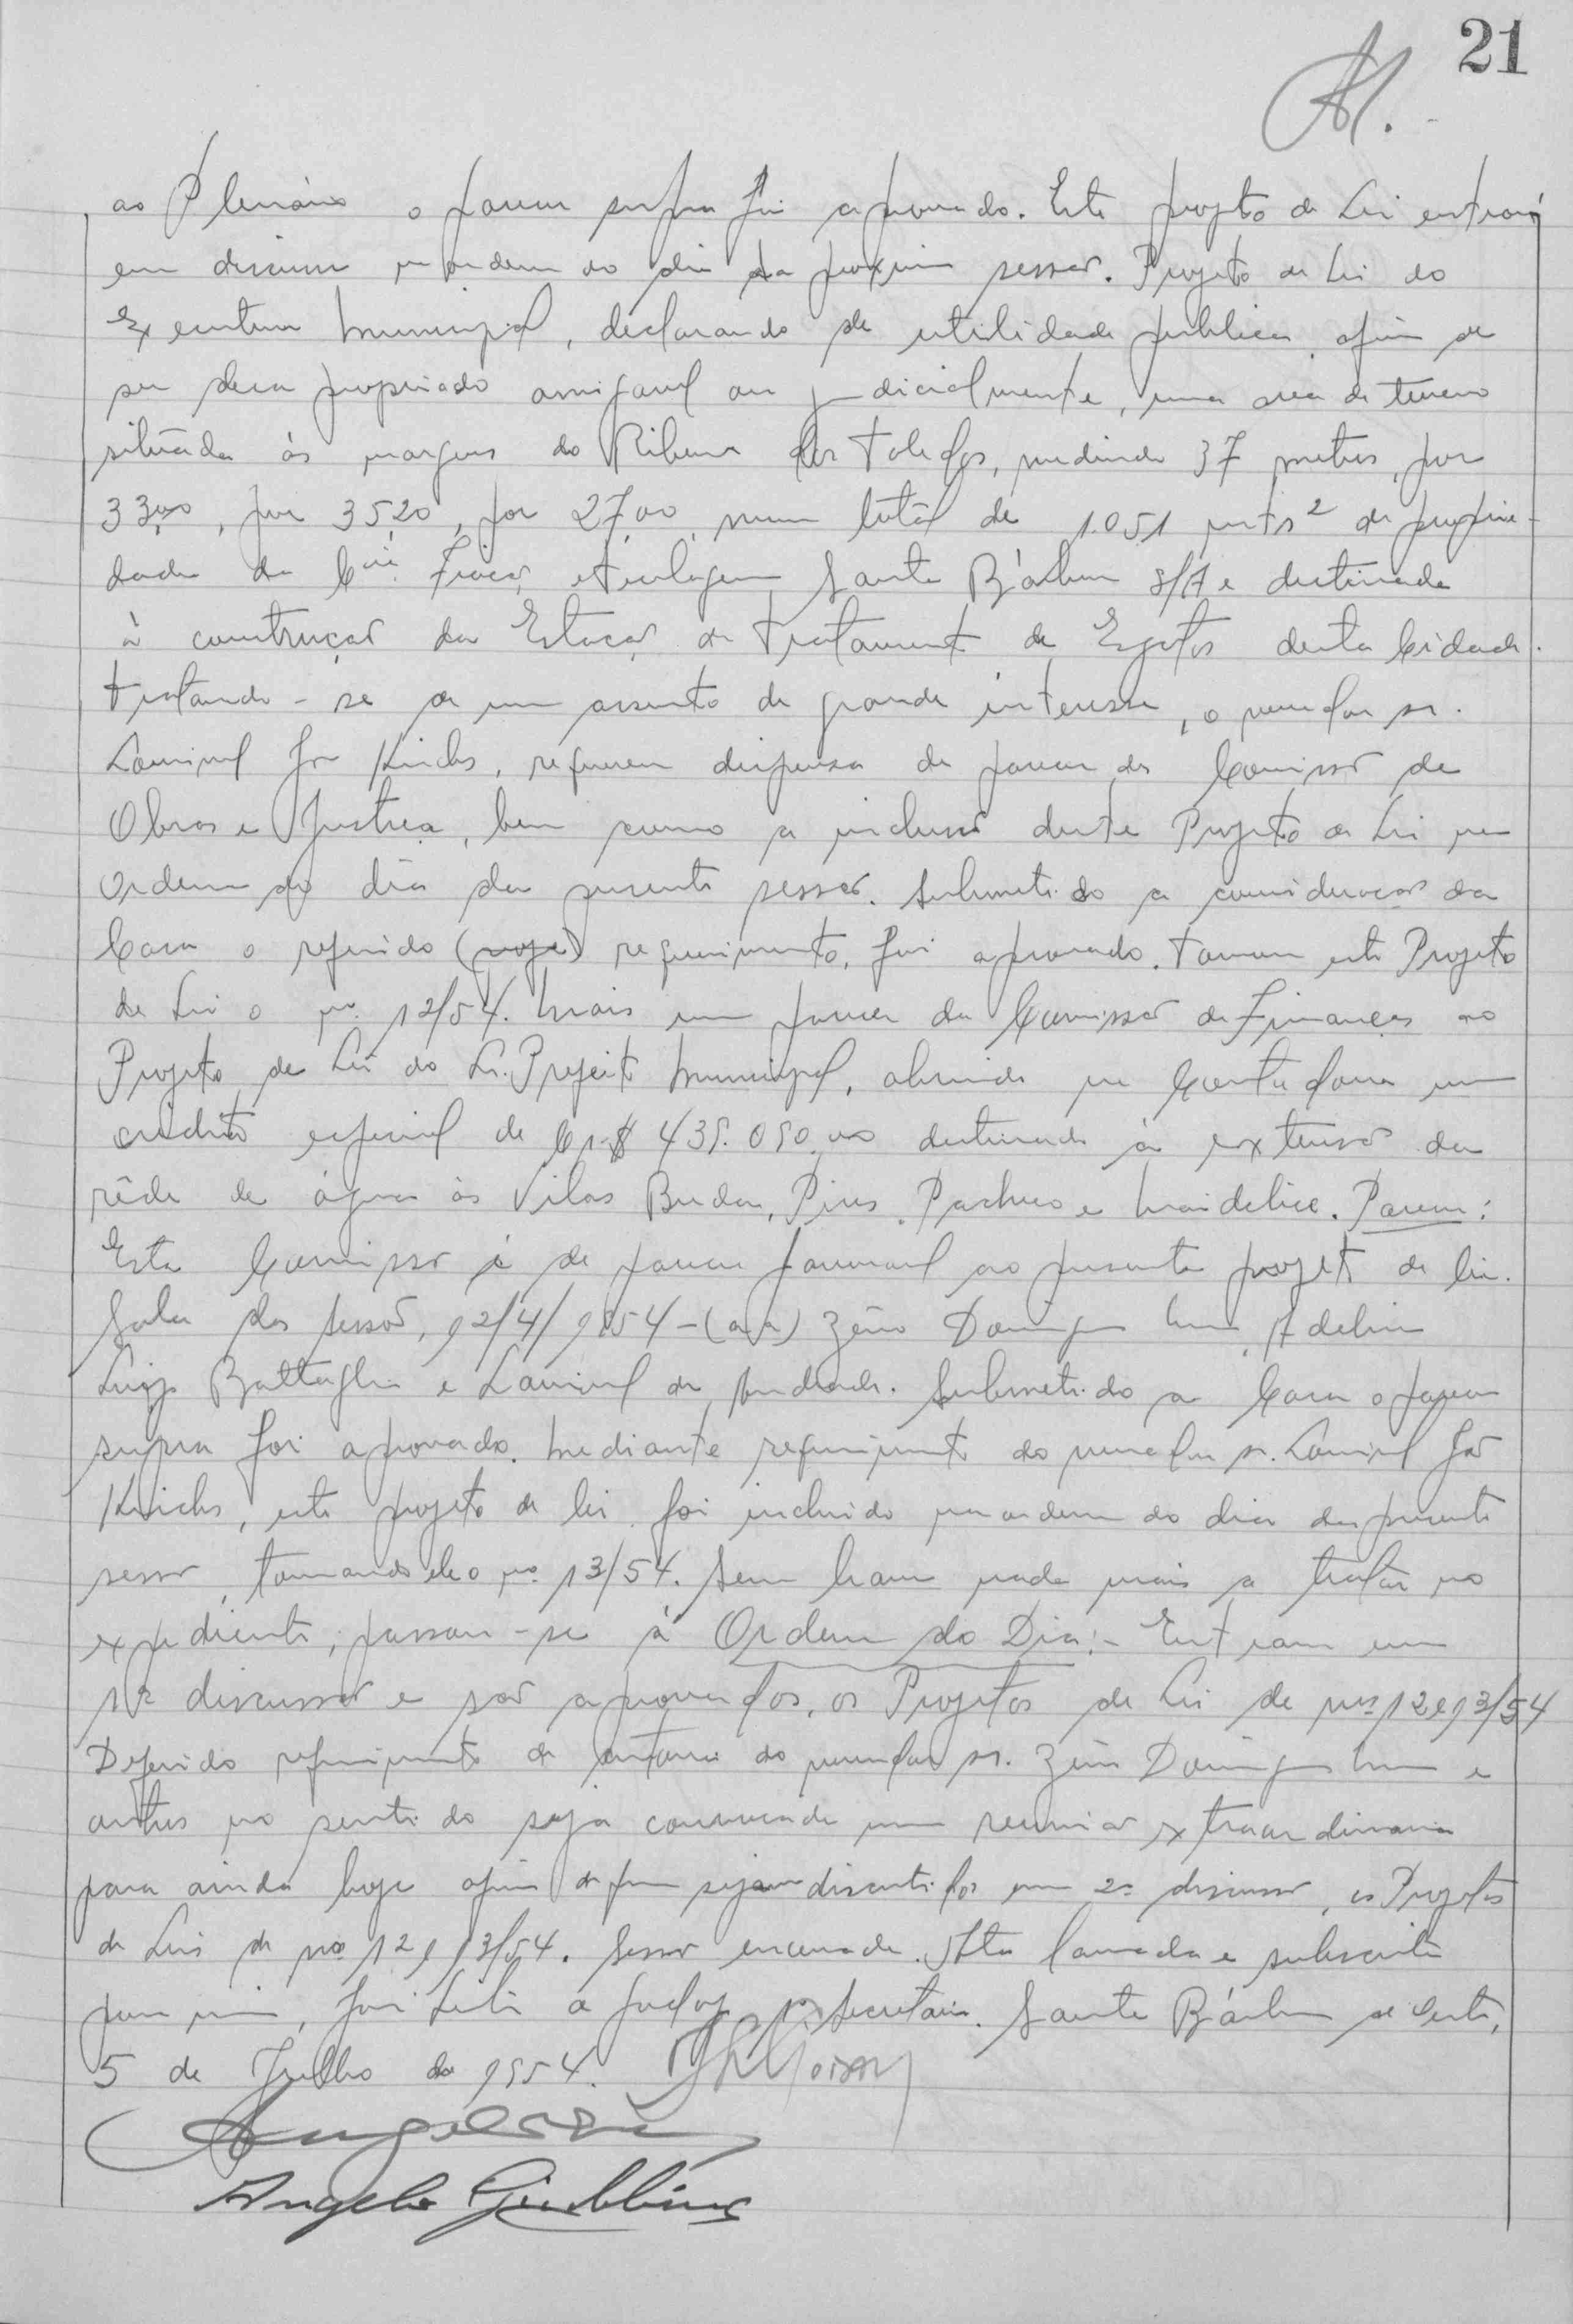 21
ao Plenário o parecer supra foi aprovado. Este projeto de Lei entrará
em discussão na ordem do dia da proxima sessão. Projeto de Lei do
Executivo Municipal, declarando de utilidade publica, afim de
ser desapropriado amigavel ou judicialmente, uma area de terreno
situada às margens do Ribeirão dos Toledos, medindo 37 metros, por
33,00, por 35,20, por 27,00, num total de 1.051 mts² de proprie-
dade da Cia. Fiação e Tecelagem Santa Bárbara S/A e destinada
à construção da Estação de Tratamento de Esgotos desta Cidade.
Tratando-se de um assunto de grande interesse, o vereador sr.
Lourival requereu dispensa de parecer da Comissão de
Obras e Justiça, bem como a inclusão deste Projeto de Lei na
Ordem do dia da presente sessão. Submetido a consideração da
Casa o referido (proje) requerimento, foi aprovado. Tomou este Projeto
de Lei o nº 12/54. Mais um parecer da Comissão de Finanças ao
Projeto de Lei do Sr. Prefeito Municipal, abrindo na Contadoria um
crédito especial de Cr$ 435.050,00 destinado à extensão da
rêde de água às Vilas Pires, Pacheco e Parecer:
Esta Comissão é de parecer favoravel ao presente projeto de lei.
Sala das sessões, 12/4/1954 - (aa) Zêno Domingues Maia, Adelino
Luiz Battaglia e Lourival de Andrade. Submetido a Casa o parecer
supra foi aprovado. Mediante requerimento do vereador sr. Lourival
este projeto de lei foi incluido na ordem do dia da presente
sessão, tomando ele o nº 13/54. Sem haver nada mais a tratar no
expediente, passou-se à Ordem do Dia:- Entram em
1ª discussão e são aprovados, os Projetos de Lei de nºs 12 e 13/54
Deferido requerimento de autoria do vereador sr. Zêno Domingues Maia e
outros no sentido seja convocada uma reunião extraordinaria
para ainda hoje afim de que sejam discutidos em 2ª discussão, os Projetos
de Leis de nºs 12 e 13/54. Sessão encerrada. Ata lavrada e subscrita
por mim, 1º Secretario. Santa Bárbara d'Oeste,
5 de Julho de 1954.
Angelo Giubbina